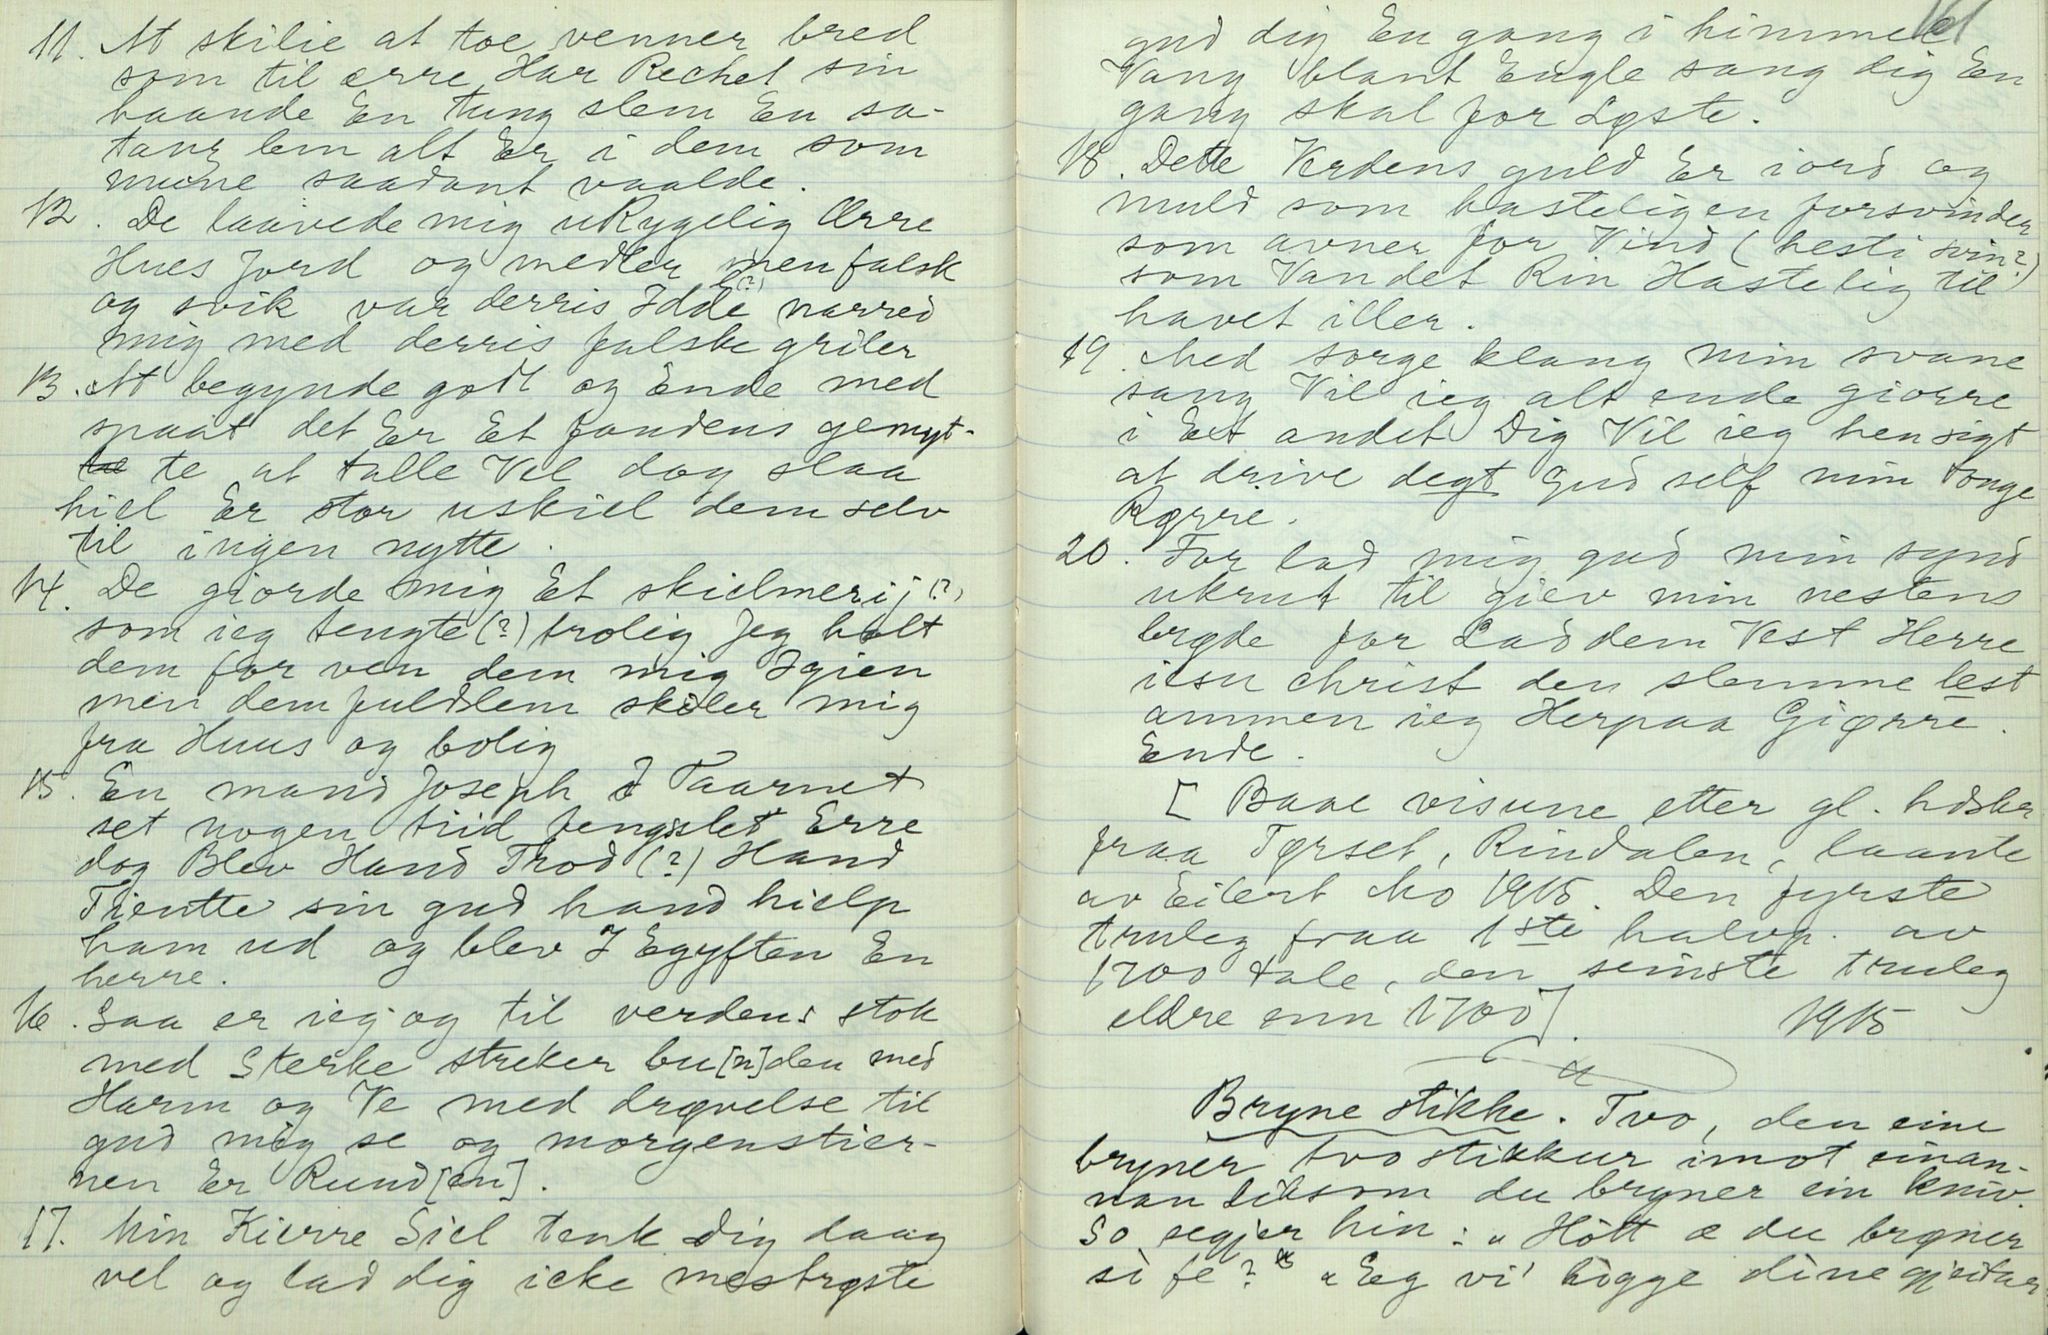 11. At skilie at toe venner bred
som til ærre Har Rechel sin
baande En tung slem En sa-
tans lem alt Er i dem som
mune saadant vaalde.
12. De laavede mig uRygelig Ærre
Hues Jord og medler men falsk
og svik var derris Idde (?) narred
mig med derris falske griler
13. At begynde godt og Ende med
spaat det Er Et fandens gemyt-
te at talle Vel dog slaa
hiel Er stor uskiel dem selv
til ingen nytte.
14. De giorde mig Et skielmerij (?)
som ieg tengte (?) trolig Jeg holt
dem for ven dem mig Igien
men dem fuldslem skiler mig
fra Huus og bolig
15. En mand Joseph I Taarnet
set nogen tiid fengslet Erre
dog Blev Hand Trod (?) Hand
Tientte sin gud hand hielp
ham ud og blev I Egyften En
herre.
16. Saa er ieg og til verdens stok
med Sterke streker bu[n]den med
Harm og Ve med drøvelse til
gud mig se og morgenstier-
nen Er Rund[en].
17. Min Kierre Siel tenk dig daag
vel og lad dig icke mestrøste
161
gud dig En gang i himmel
Vang blant Engle sang dig En
gang skal for Løste.
18. Dette Verdens guld Er iord og
muld som hasteligen forsvinder
som avner for Vind (hesti svin?)
som Vandet Rin Hastelig til
havet iller.
19. Med sorge klang min svane
sang Vil ieg alt ende giørre
i Et andet Dig Vil ieg hensigt
at drive degt Gud self min tonge
Rørre.
20. For lad mig gud min synd
ukrut til giev min nestens
brøde for Lad dem Vest Herre
iesu Christ den slemme lest
ammen ieg Herpaa Giørre
Ende.
[Baae visune etter gl. hdskr
fraa Tørset, Rindalen, laante
av Eilert Mo 1915. Den fyrste
truleg fraa 1ste halvp. av
1700 tale, den seinste truleg
eldre enn 1700]. 1915
Bryne stikke. Tvo, den eine
bryner tvo stikkur imot einan-
nan liksom du bryner ein kniv.
So segjer hin: "Hòtt æ du brøner
sì fe?" "Eg vi' hògge dine gjeitar